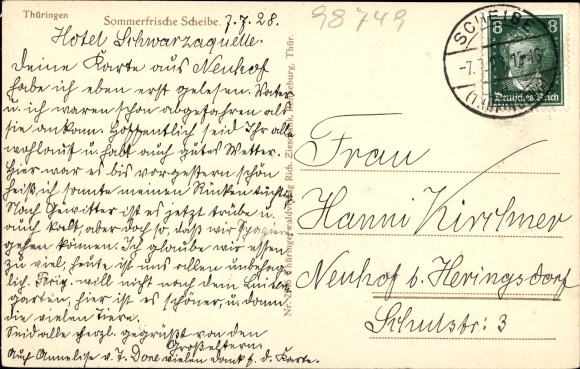 Thüringen
Sommerfrische Scheibe.
7.7.28.
98749
Hotel Schwarzaquelle.
Deine Karte aus Neuhof
habe ich eben erst gelesen. Vater
u. ich waren schon abgefahren als
sie ankam. Hoffentlich seid Ihr alle
wohlauf u. habt auch gutes Wetter.
Hier war es bis vorgestern schön
heiß, ich sonnte meinen Rücken tücht.
Nach Gewitter ist es jetzt trübe u.
auch kalt, aber doch so, daß wir spazieren
gehen können. Ich glaube wir essen
zu viel, heute ist uns allen unbehag-
lich. will nicht nach dem
garten, hier ist es schöner, u. dann
die vielen Tiere.
Seid alle herzl. gegrüßt von den
Großeltern.
Auch Annelise v. T. Dore vielen Dank f. d. Karte.
Thüringerwaldverlag Rich. Zieschank, Thür.
SCHEIBE
8 8
Deutsches Reich
Frau
Hanni Kirchner
Neuhof b. Heringsdorf
Schulstr: 3